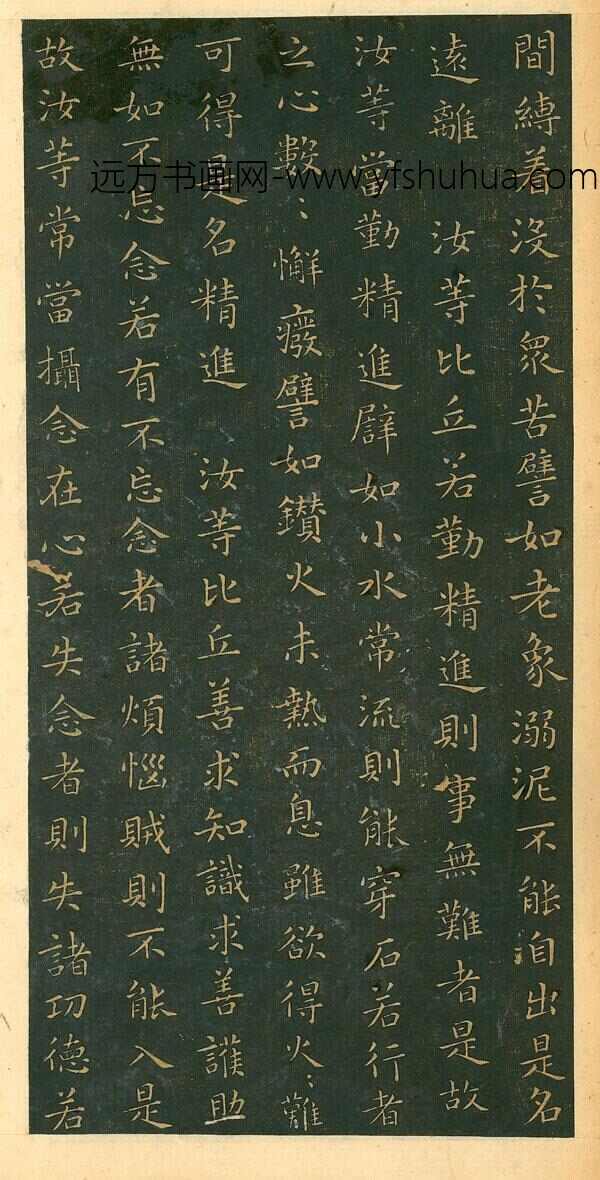 間縛着没於衆苦譬如老象溺泥不能自出是名
遠離 汝等比丘若勤精進則事無難者是故
汝等當勤精進辟如小水常流則能穿石若行者
之心數〻懈癈譬如鑚火未熱而息雖欲得火〻難
可得是名精進 汝等比丘善求知識求善護助
無如不忘念若有不忘念者諸煩惱賊則不能入是
故汝等常當攝念在心若失念者則失諸功德若
远方书画网-www.yfshuhua.com